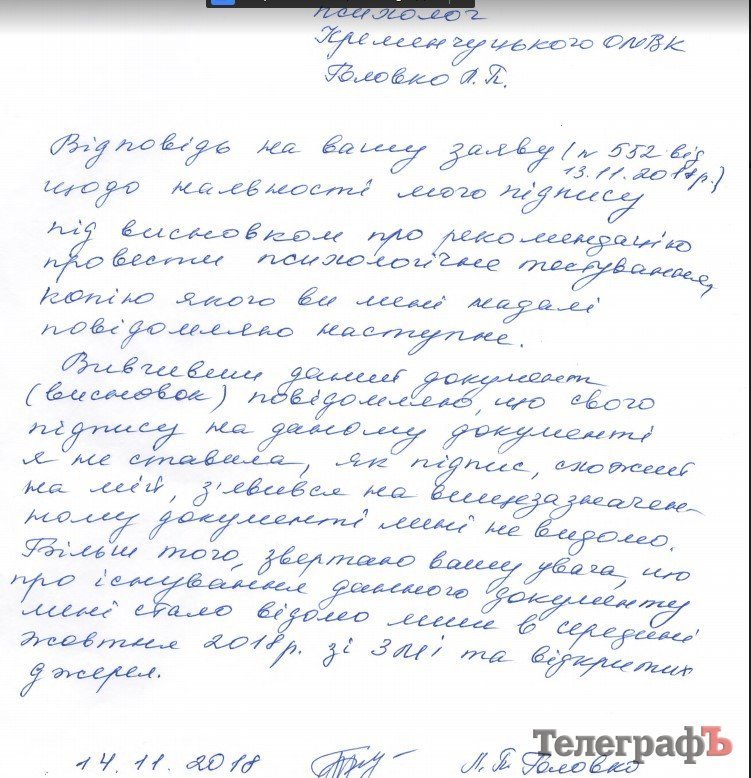 психолог
Кременчуцького ОМВК
Головко Л.П.
Відповідь на вашу заяву (№ 552 від
13.11.2018р.)
щодо наявності мого підпису
під висновком про рекомендацію
провести психологічне тестування,
копію якого ви мені надалі
повідомляю наступне.
Вивчивши даний документ
(висновок) повідомляю, що свого
підпису на даному документі
я не ставила, як підпис, схожий
на мій, з'явився на вищезазначен-
ному документі мині не видомо.
Більш того, звертаю вашу увага, що
про існування данного документу
мині стало відомо лише в середині
жовтня 2018р. зі ЗМІ та відкритих
джерел.
14.11.2018 Л.П. Головко
ТелеграфЪ